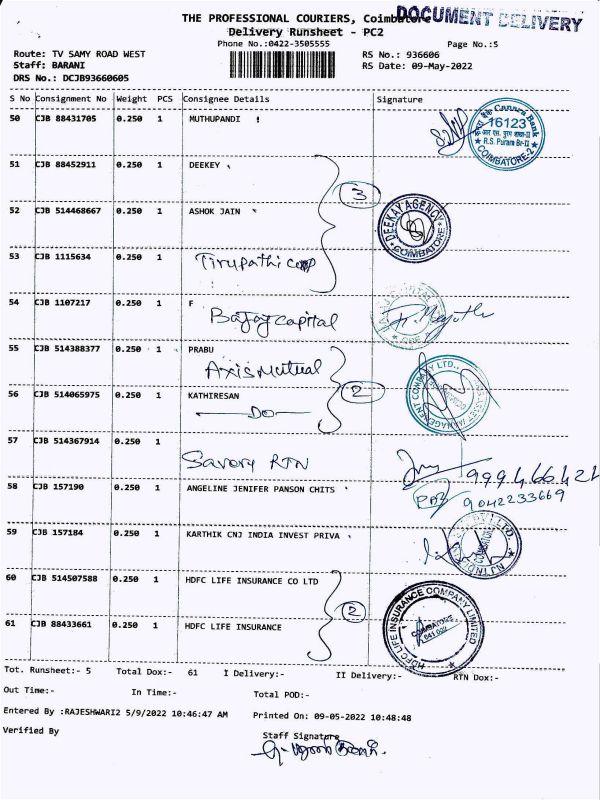 THE PROFESSIONAL COURIERS, Coimbatore
DOCUMENT DELIVERY
Delivery Runsheet - PC2
Phone No.:0422-3505555
Page No.:5
Route: TV SAMY ROAD WEST
RS No.: 936606
Staff: BARANI
RS Date: 09-May-2022
DRS No.: DCJB93660605
S No Consignment No Weight PCS Consignee Details Signature
50 CJB 88431705 0.250 1 MUTHUPANDI
Canara Bank
16123
R.S. Puram Br-II
COIMBATORE-2
51 CJB 88452911 0.250 1 DEEKEY
3
52 CJB 514468667 0.250 1 ASHOK JAIN
DEEKAY AGENCY
COIMBATORE
53 CJB 1115634 0.250 1
Tirupathi
54 CJB 1107217 0.250 1 F
Bajaj capital
55 CJB 514388377 0.250 1 PRABU
Axis Mutual
56 CJB 514065975 0.250 1 KATHIRESAN
2
Do
57 CJB 514367914 0.250 1
Savory RTN
58 CJB 157190 0.250 1 ANGELINE JENIFER PANSON CHITS
9042233669
59 CJB 157184 0.250 1 KARTHIK CNJ INDIA INVEST PRIVA
60 CJB 514507588 0.250 1 HDFC LIFE INSURANCE CO LTD
2
HDFC LIFE INSURANCE COMPANY LIMITED
COIMBATORE
641 002
61 CJB 88433661 0.250 1 HDFC LIFE INSURANCE
Tot. Runsheet:- 5 Total Dox:- 61 I Delivery:- II Delivery:- RTN Dox:-
Out Time:- In Time:- Total POD:-
Entered By :RAJESHWARI2 5/9/2022 10:46:47 AM Printed On: 09-05-2022 10:48:48
Verified By
Staff Signature